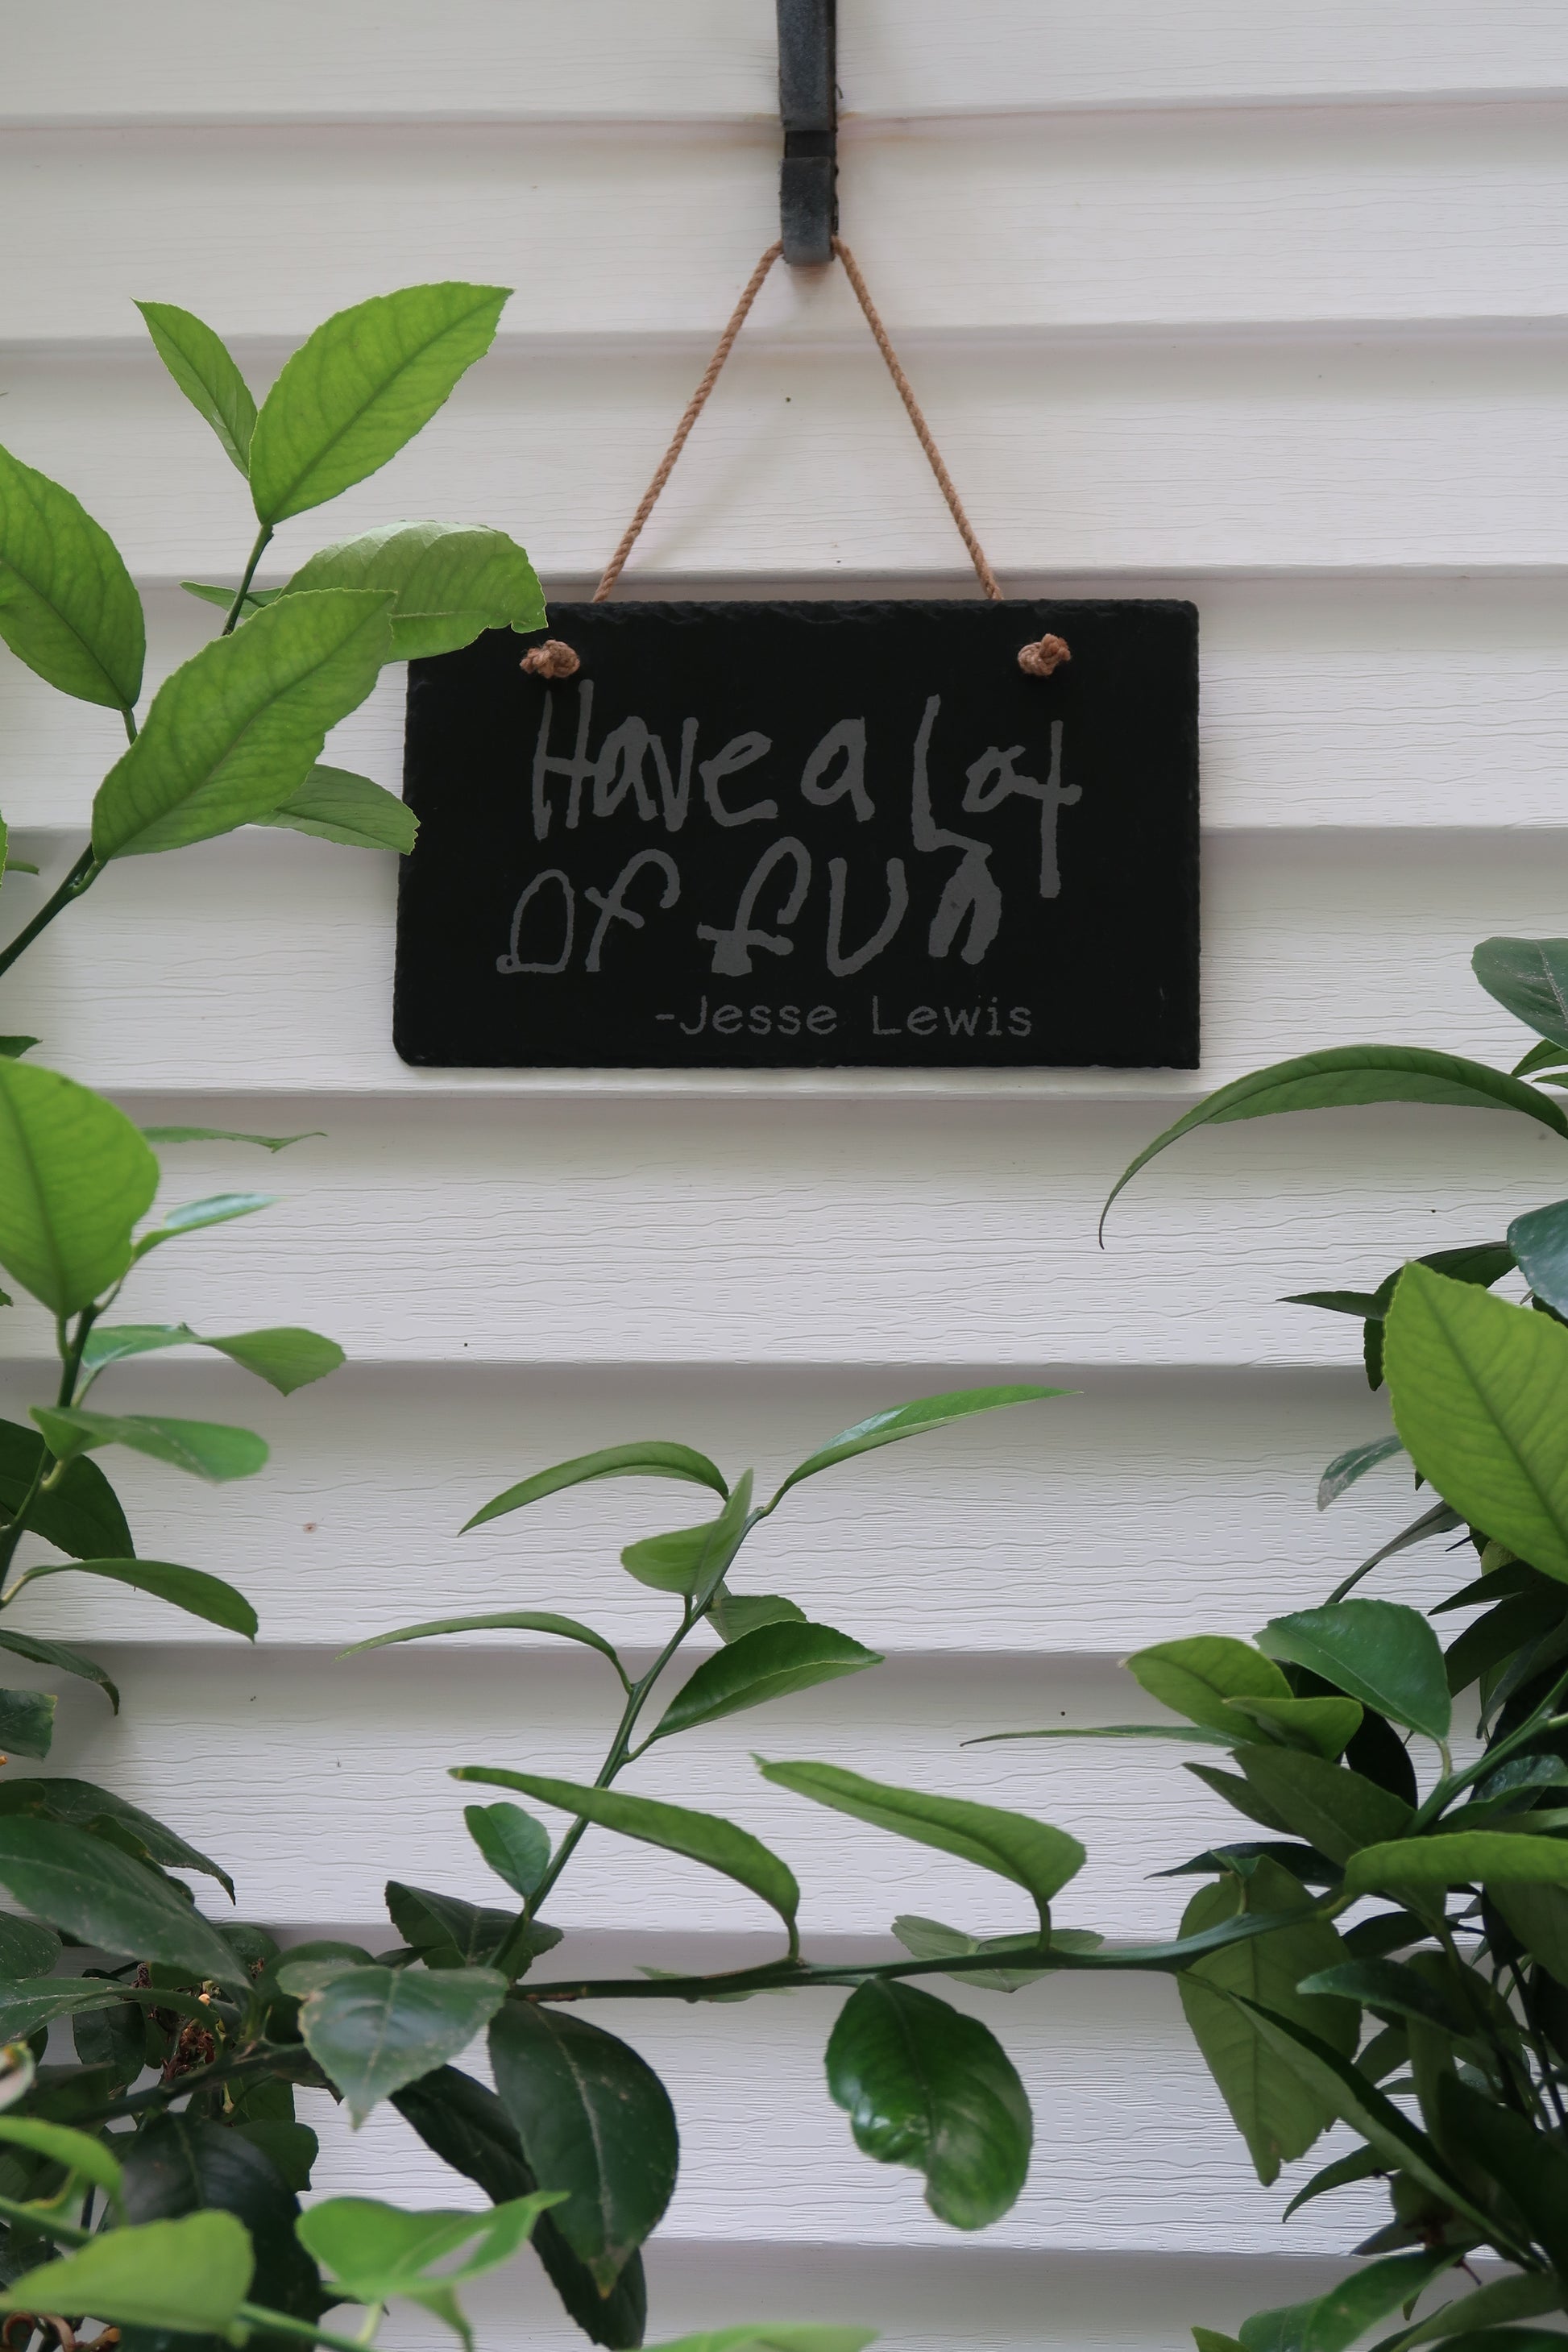 Have a Lot
Of fUn
-Jesse Lewis